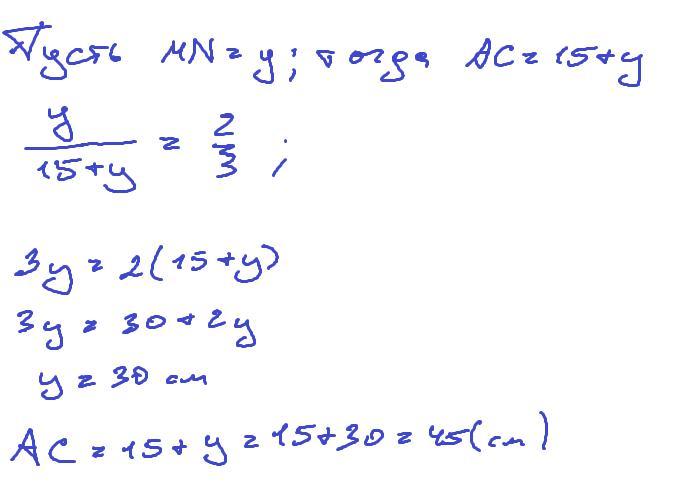 Пусть MN = y; тогда AC = 15+y
y/(15+y) = 2/3 ;
3y = 2(15+y)
3y = 30 + 2y
y = 30 см
AC = 15 + y = 15+30 = 45 (см)